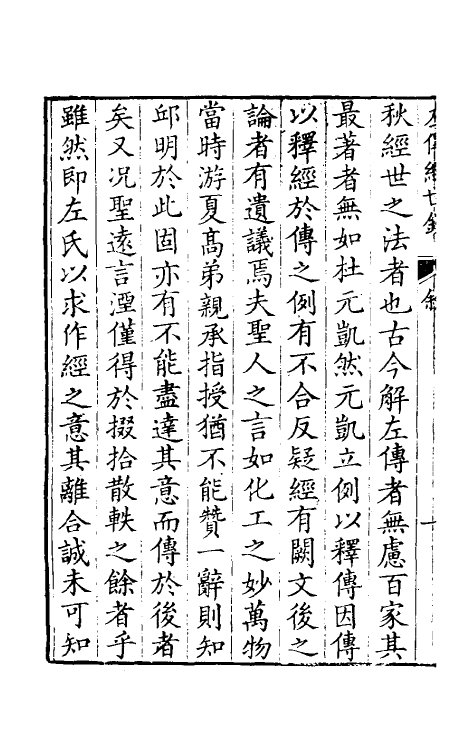 秋經世之法者也古今解左傳者無慮百家其
最著者無如杜元凱然元凱立例以釋傳因傳
以釋經於傳之例有不合反疑經有闕文後之
論者有遺議焉夫聖人之言如化工之妙萬物
當時游夏高弟親承指授猶不能贊一辭則知
邱明於此固亦有不能盡達其意而傳於後者
矣又况聖遠言湮僅得於掇拾散軼之餘者乎
雖然即左氏以求作經之意其離合誠未可知